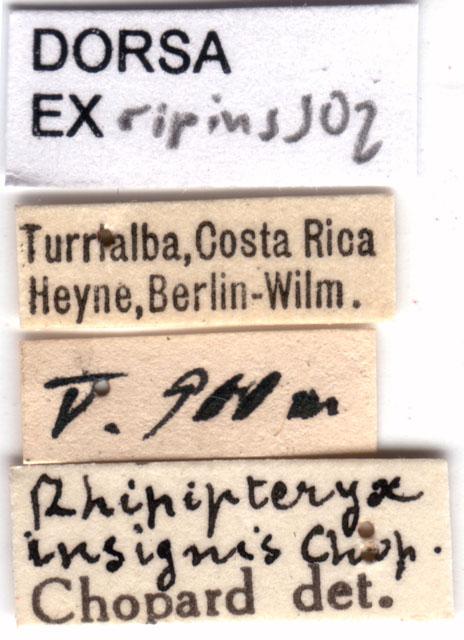 DORSA
EX ripinsJ02
Turrialba, Costa Rica
Heyne, Berlin-Wilm.
V. 900 m
Rhipipteryx
insignis Chop.
Chopard det.